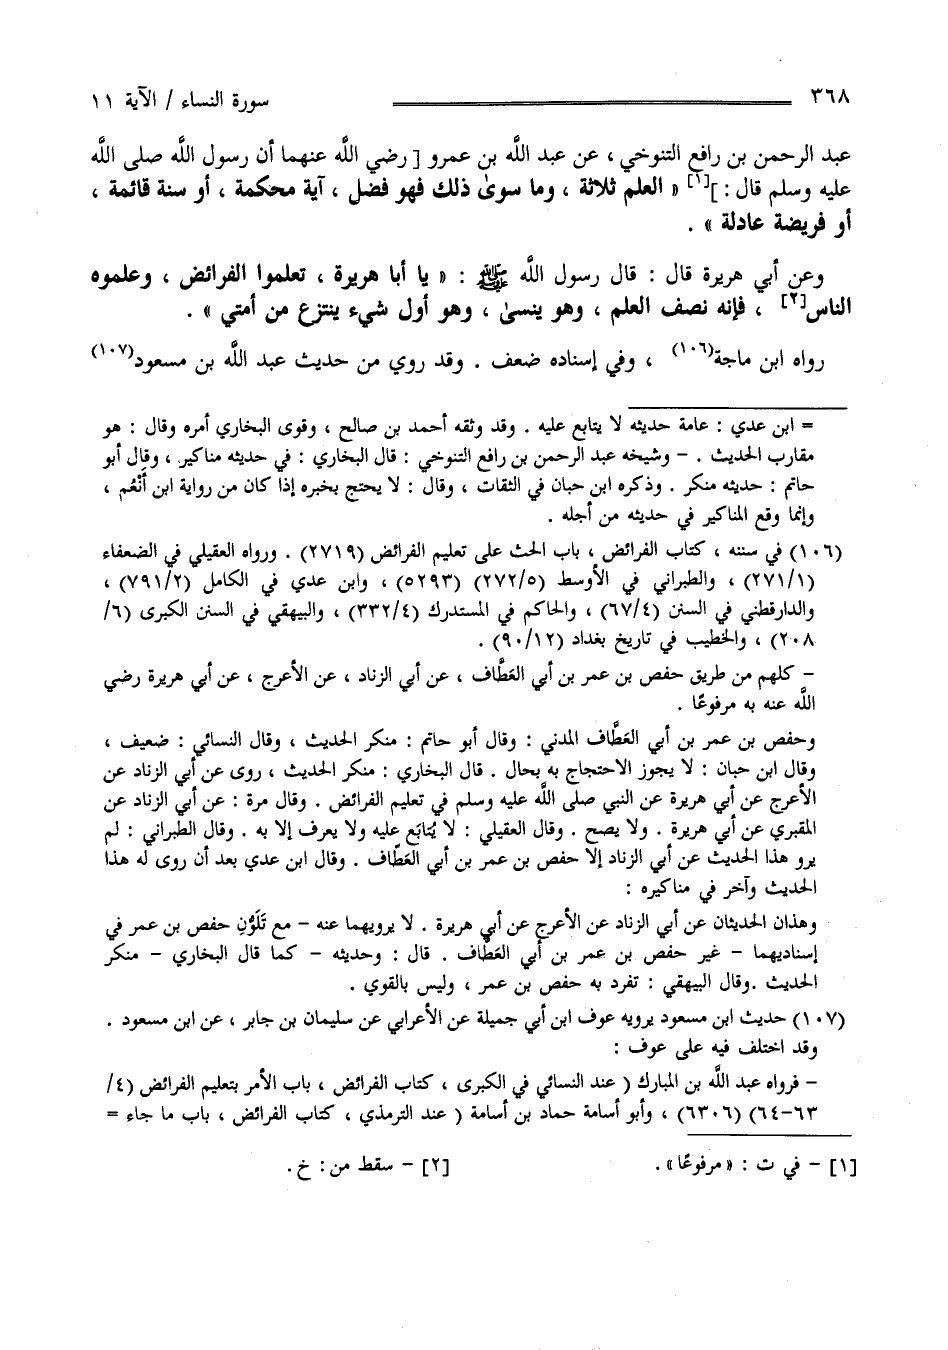 ٣٦٨ سورة النساء / الآية ١١
عبد الرحمن بن رافع التنوخي ، عن عبد اللَّه بن عمرو [ رضي اللَّه عنهما أن رسول اللَّه صلى اللَّه
عليه وسلم قال : ][١] « العلم ثلاثة ، وما سوىٰ ذلك فهو فضل ، آية محكمة ، أو سنة قائمة ،
أو فريضة عادلة » .
وعن أبي هريرة قال : قال رسول اللَّه ﷺ : « يا أبا هريرة ، تعلموا الفرائض ، وعلموه
الناس[٢] ، فإنه نصف العلم ، وهو ينسىٰ ، وهو أول شيء ينتزع من أمتي » .
رواه ابن ماجة(١٠٦) ، وفي إسناده ضعف . وقد روي من حديث عبد اللَّه بن مسعود(١٠٧)
= ابن عدي : عامة حديثه لا يتابع عليه . وقد وثقه أحمد بن صالح ، وقوى البخاري أمره وقال : هو
مقارب الحديث . – وشيخه عبد الرحمن بن رافع التنوخي : قال البخاري : في حديثه مناكير ، وقال أبو
حاتم : حديثه منكر . وذكره ابن حبان في الثقات ، وقال : لا يحتج بخبره إذا كان من رواية ابن أَنْعُم ،
وإنما وقع المناكير في حديثه من أجله .
(١٠٦) في سننه ، كتاب الفرائض ، باب الحث على تعليم الفرائض (٢٧١٩) . ورواه العقيلي في الضعفاء
(٢٧١/١) ، والطبراني في الأوسط (٢٧٢/٥) (٥٢٩٣) ، وابن عدي في الكامل (٧٩١/٢) ،
والدارقطني في السنن (٦٧/٤) ، والحاكم في المستدرك (٣٣٢/٤) ، والبيهقي في السنن الكبرى (٦/
٢٠٨) ، والخطيب في تاريخ بغداد (٩٠/١٢) .
– كلهم من طريق حفص بن عمر بن أبي العَطَّاف ، عن أبي الزناد ، عن الأعرج ، عن أبي هريرة رضي
اللَّه عنه به مرفوعًا .
وحفص بن عمر بن أبي العَطَّاف المدني : وقال أبو حاتم : منكر الحديث ، وقال النسائي : ضعيف ،
وقال ابن حبان : لا يجوز الاحتجاج به بحال . قال البخاري : منكر الحديث ، روى عن أبي الزناد عن
الأعرج عن أبي هريرة عن النبي صلى اللَّه عليه وسلم في تعليم الفرائض . وقال مرة : عن أبي الزناد عن
المقبري عن أبي هريرة . ولا يصح . وقال العقيلي : لا يُتابَع عليه ولا يعرف إلا به . وقال الطبراني : لم
يرو هذا الحديث عن أبي الزناد إلا حفص بن عمر بن أبي العَطَّاف . وقال ابن عدي بعد أن روى له هذا
الحديث وآخر في مناكيره :
وهذان الحديثان عن أبي الزناد عن الأعرج عن أبي هريرة . لا يرويهما عنه – مع تَلَوُّنِ حفص بن عمر في
إسناديهما – غير حفص بن عمر بن أبي العَطَّاف . قال : وحديثه – كما قال البخاري – منكر
الحديث .وقال البيهقي : تفرد به حفص بن عمر ، وليس بالقوي .
(١٠٧) حديث ابن مسعود يرويه عوف ابن أبي جميلة عن الأعرابي عن سليمان بن جابر ، عن ابن مسعود .
وقد اختلف فيه على عوف :
– فرواه عبد اللَّه بن المبارك ( عند النسائي في الكبرى ، كتاب الفرائض ، باب الأمر بتعليم الفرائض (٤/
٦٣–٦٤) (٦٣٠٦) ، وأبو أسامة حماد بن أسامة ( عند الترمذي ، كتاب الفرائض ، باب ما جاء =
[١] – في ت : « مرفوعًا ». [٢] – سقط من : خ.